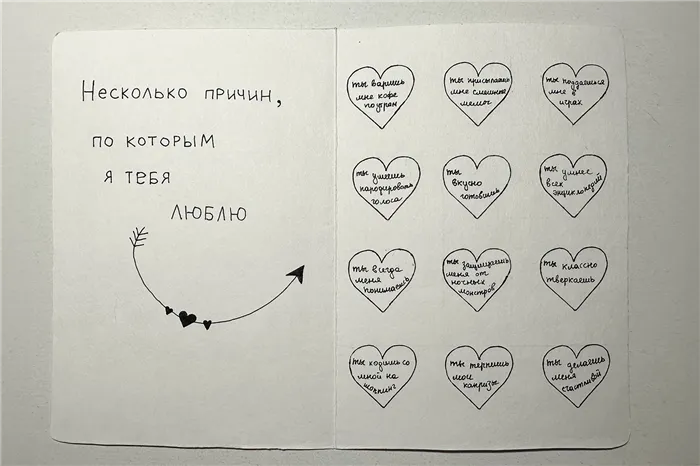 Несколько причин,
по которым
я тебя
люблю
ты варишь
мне кофе
по утрам
ты присылаешь
мне смешные
мемы
ты поддаёшься
мне в
играх
ты умеешь
пародировать
голоса
ты
вкусно
готовишь
ты умнее
всех
энциклопедий
ты всегда
меня
понимаешь
ты защищаешь
меня от
ночных
монстров
ты классно
тверкаешь
ты ходишь со
мной на
шоппинг
ты терпишь
мои
капризы
ты делаешь
меня
счастливой